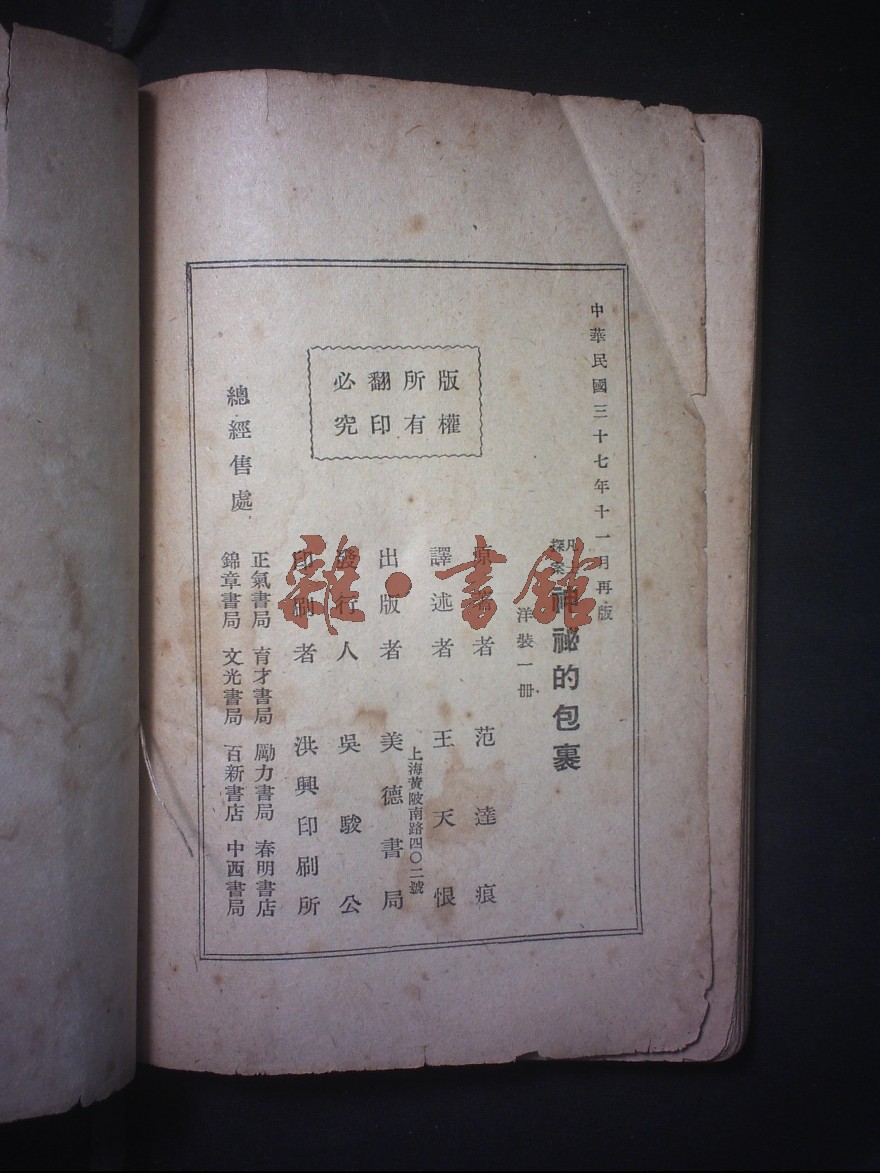 中華民國三十七年十一月再版
凡士探案
神祕的包裹
洋裝一册
原著者 范達痕
譯述者 王天恨
上海黃陂南路四〇二號
出版者 美德書局
發行人 吳駿公
印刷者 洪興印刷所
版權
所有
翻印
必究
總經售處
正氣書局 育才書局 勵力書局 春明書店
錦章書局 文光書局 百新書店 中西書局
雜·書館